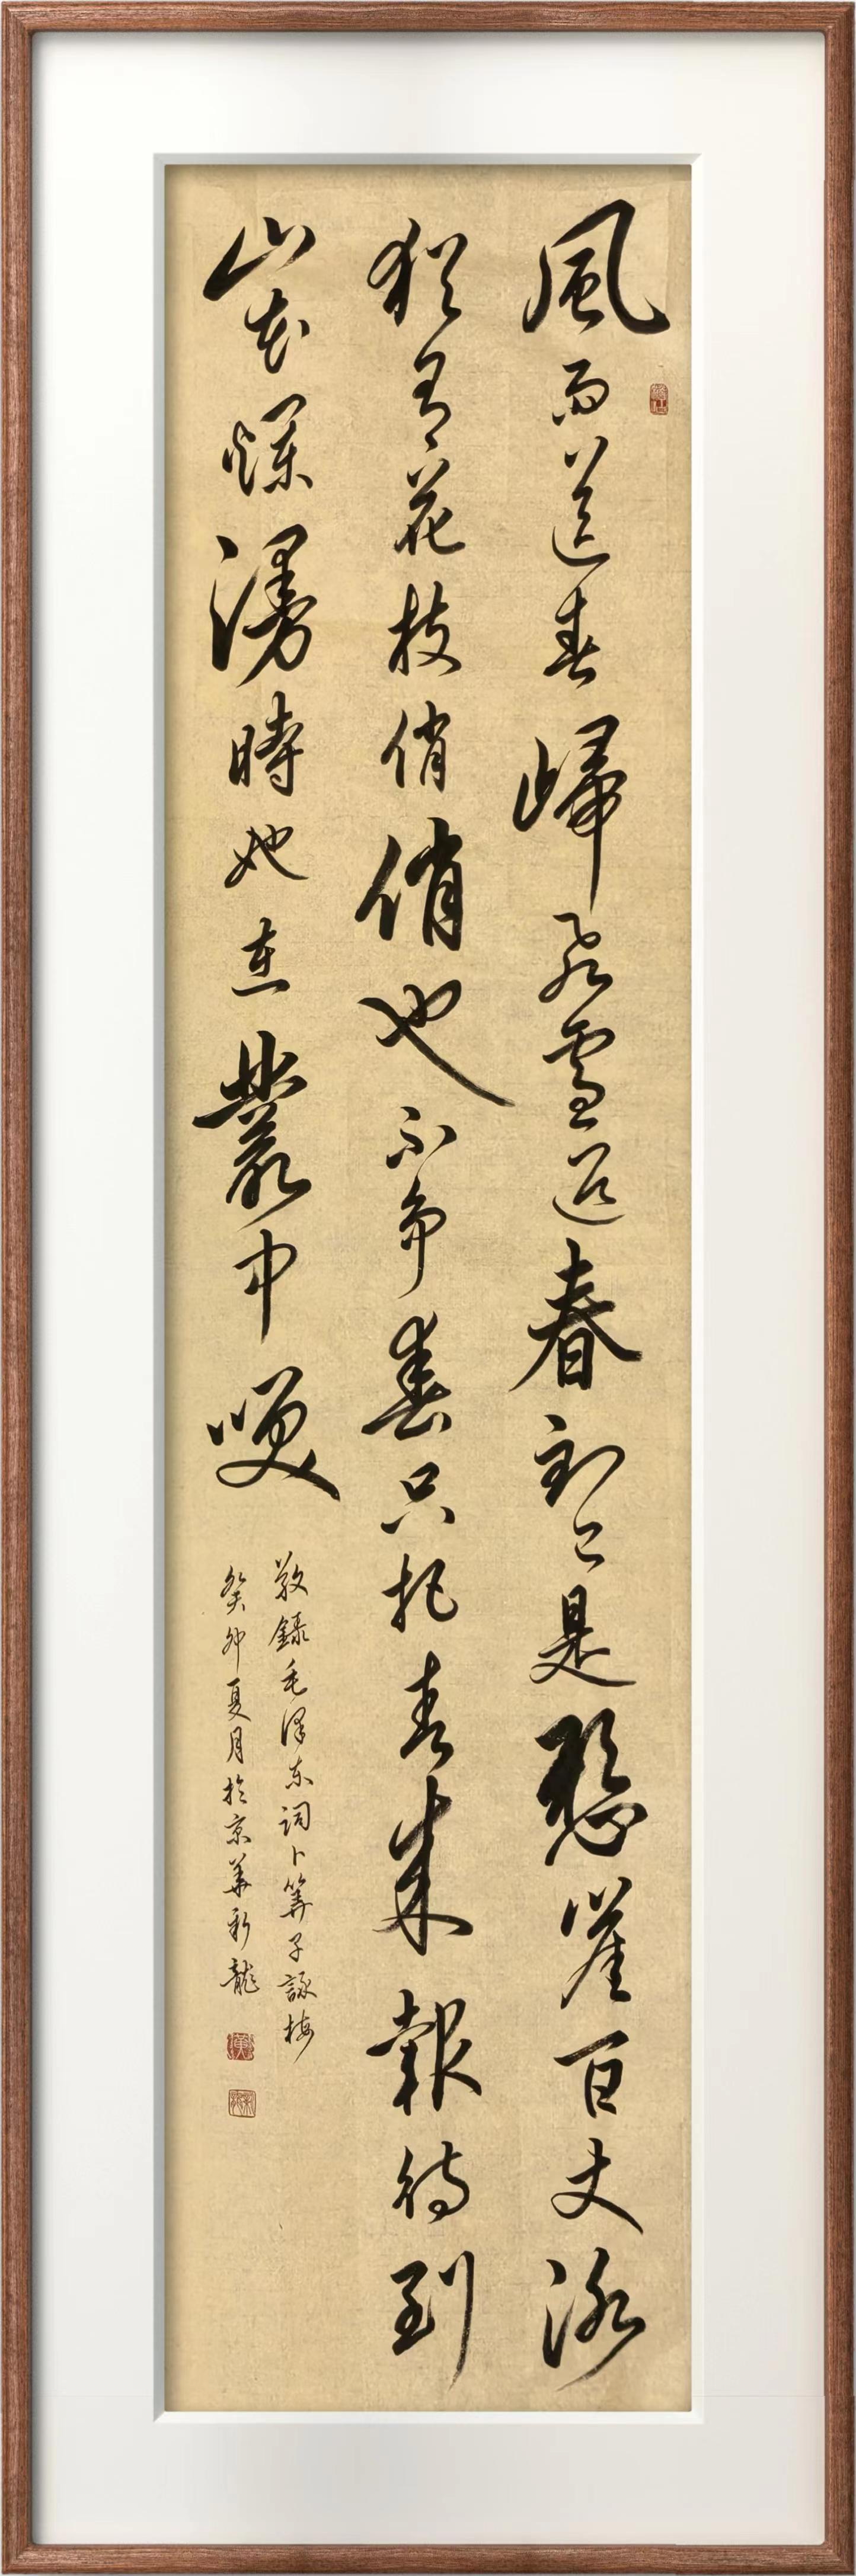 風雨送春歸飛雪迎春到已是懸崖百丈冰
猶有花枝俏俏也不争春只把春來報待到
山花爛漫時她在叢中咲
敬録毛泽东詞卜算子詠梅
癸卯夏月於京華新龍